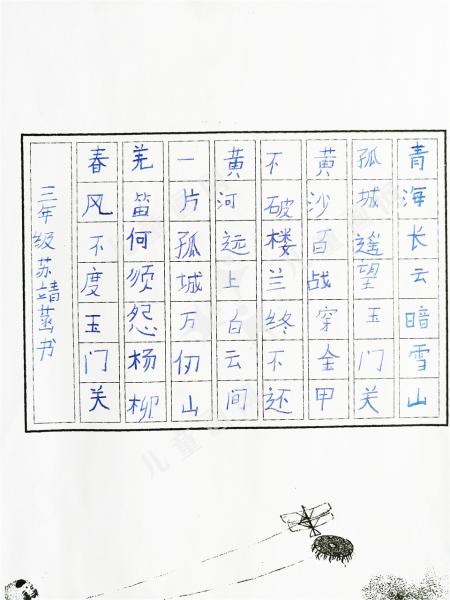 青海长云暗雪山
孤城遥望玉门关
黄沙百战穿金甲
不破楼兰终不还
黄河远上白云间
一片孤城万仞山
羌笛何须怨杨柳
春风不度玉门关
三年级苏靖菡书